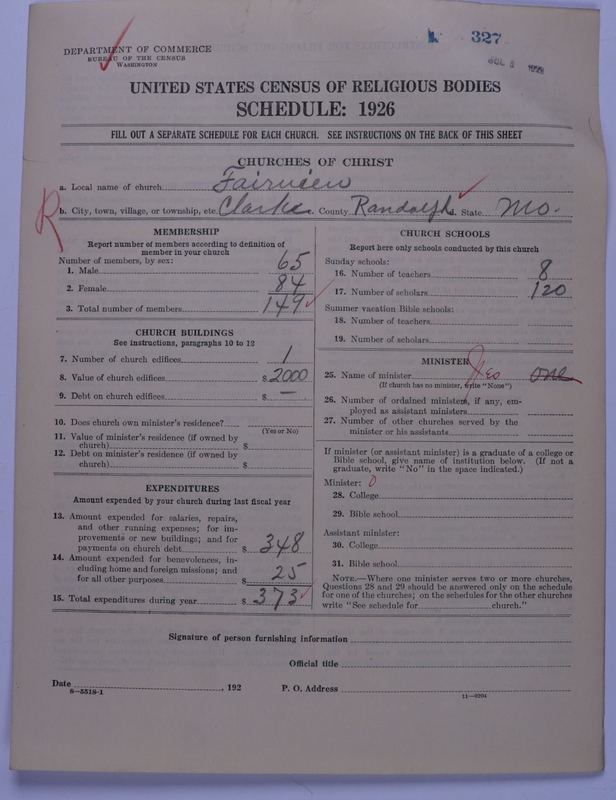 327
DEPARTMENT OF COMMERCE
BUREAU OF THE CENSUS
WASHINGTON
UNITED STATES CENSUS OF RELIGIOUS BODIES
SCHEDULE: 1926
FILL OUT A SEPARATE SCHEDULE FOR EACH CHURCH. SEE INSTRUCTIONS ON THE BACK OF THIS SHEET
CHURCHES OF CHRIST
a. Local name of church Fairview
R
b. City, town, village, or township, etc. Clark County Randolph State Mo.
MEMBERSHIP
Report number of members according to definition of
member in your church
Number of members, by sex:
1. Male 65
2. Female 84
3. Total number of members 149
CHURCH BUILDINGS
See instructions, paragraphs 10 to 12
7. Number of church edifices 1
8. Value of church edifices $ 2000
9. Debt on church edifices $ —
10. Does church own minister's residence?
(Yes or No)
11. Value of minister's residence (if owned by
church) $
12. Debt on minister's residence (if owned by
church) $
EXPENDITURES
Amount expended by your church during last fiscal year
13. Amount expended for salaries, repairs,
and other running expenses; for im-
provements or new buildings; and for
payments on church debt $ 348
14. Amount expended for benevolences, in-
cluding home and foreign missions; and
for all other purposes $ 25
15. Total expenditures during year $ 373
CHURCH SCHOOLS
Report here only schools conducted by this church
Sunday schools:
16. Number of teachers 8
17. Number of scholars 120
Summer vacation Bible schools:
18. Number of teachers
19. Number of scholars
MINISTER
25. Name of minister Yes one
(If church has no minister, write "None")
26. Number of ordained ministers, if any, em-
ployed as assistant ministers
27. Number of other churches served by the
minister or his assistants
If minister (or assistant minister) is a graduate of a college or
Bible school, give name of institution below. (If not a
graduate, write "No" in the space indicated.)
Minister: 0
28. College
29. Bible school
Assistant minister:
30. College
31. Bible school
NOTE.—Where one minister serves two or more churches,
Questions 28 and 29 should be answered only on the schedule
for one of the churches; on the schedules for the other churches
write "See schedule for church."
Signature of person furnishing information
Official title
Date , 192 P. O. Address
8—5518-1
11—9204